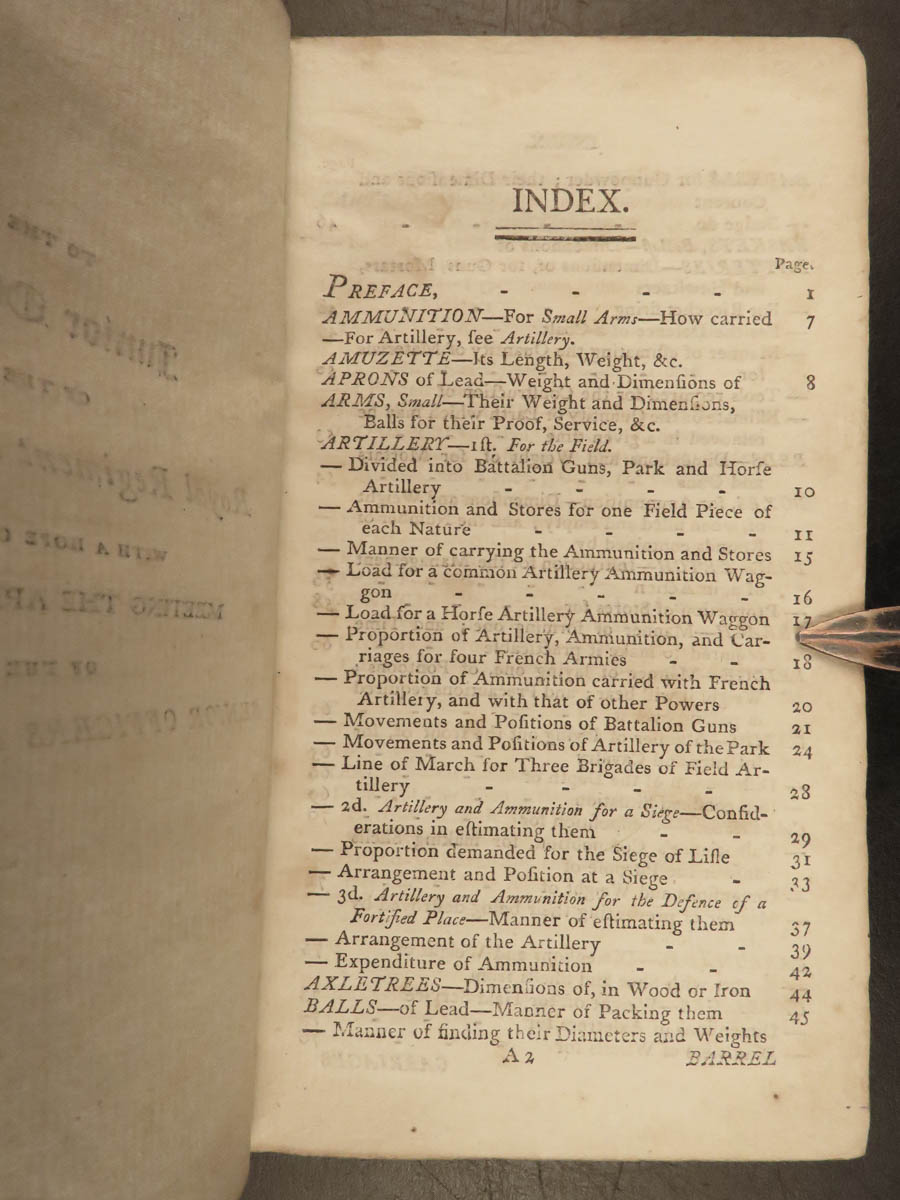 INDEX.
Page.
PREFACE, - - - - 1
AMMUNITION—For Small Arms—How carried 7
—For Artillery, ſee Artillery.
AMUZETTE—Its Length, Weight, &c.
APRONS of Lead—Weight and Dimenſions of 8
ARMS, Small—Their Weight and Dimenſions,
Balls for their Proof, Service, &c.
ARTILLERY—1ſt. For the Field.
— Divided into Battalion Guns, Park and Horſe
Artillery - - - - 10
— Ammunition and Stores for one Field Piece of
each Nature - - - - 11
— Manner of carrying the Ammunition and Stores 15
— Load for a common Artillery Ammunition Wag-
gon - - - - - 16
— Load for a Horſe Artillery Ammunition Waggon 17
— Proportion of Artillery, Ammunition, and Car-
riages for four French Armies - - 18
— Proportion of Ammunition carried with French
Artillery, and with that of other Powers 20
— Movements and Poſitions of Battalion Guns 21
— Movements and Poſitions of Artillery of the Park 24
— Line of March for Three Brigades of Field Ar-
tillery - - - - 28
— 2d. Artillery and Ammunition for a Siege—Conſid-
erations in eſtimating them - - 29
— Proportion demanded for the Siege of Liſle 31
— Arrangement and Poſition at a Siege - 33
— 3d. Artillery and Ammunition for the Defence of a
Fortified Place—Manner of eſtimating them 37
— Arrangement of the Artillery - - 39
— Expenditure of Ammunition - - 42
AXLETREES—Dimenſions of, in Wood or Iron 44
BALLS—of Lead—Manner of Packing them 45
— Manner of finding their Diameters and Weights
A 2 BARREL